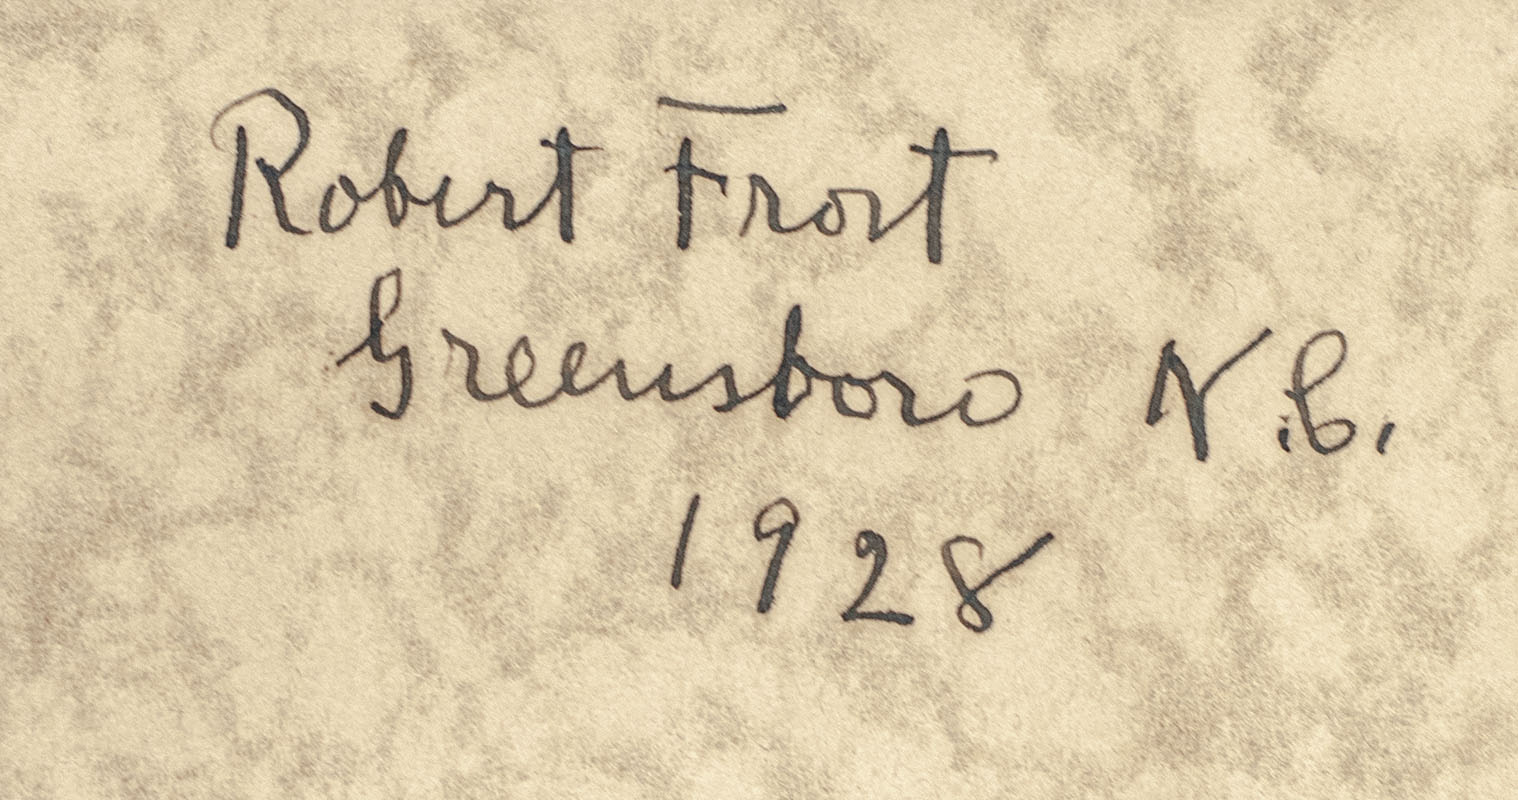 Robert Frost
Greensboro N.C.
1928